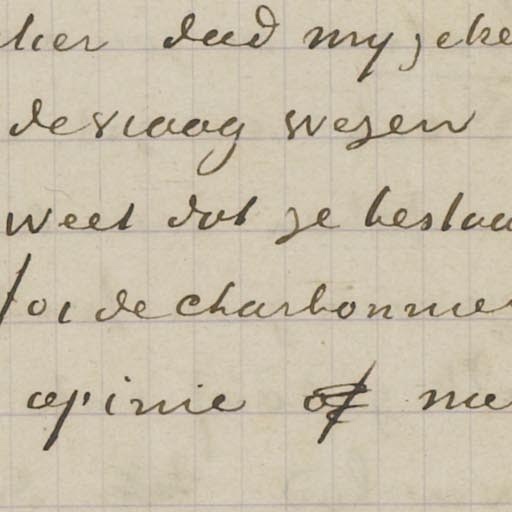 ker deed my zeke
de vraag wezen
weet dat ze bestaa
foi de charbonnie
opinie of me